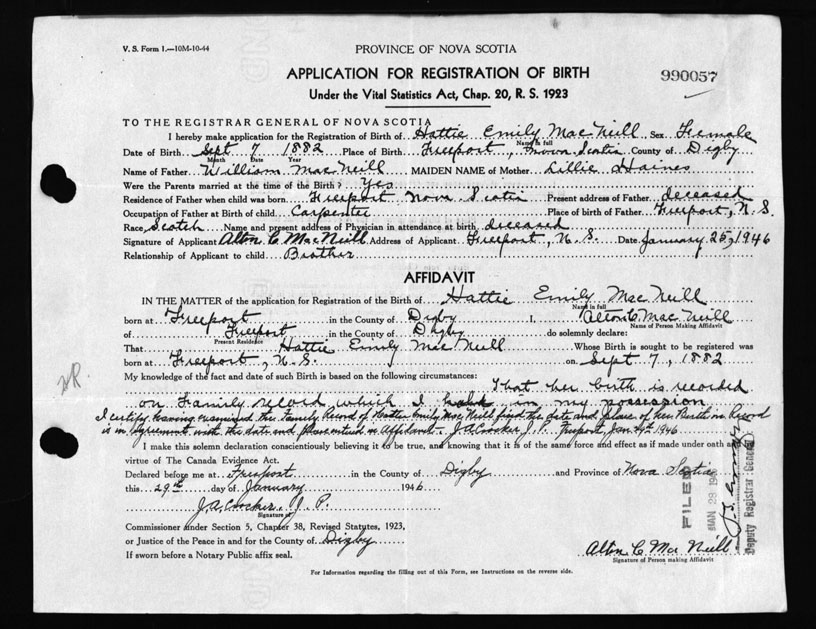 V. S. Form 1.—10M-10-44
PROVINCE OF NOVA SCOTIA
APPLICATION FOR REGISTRATION OF BIRTH
990057
Under the Vital Statistics Act, Chap. 20, R. S. 1923
TO THE REGISTRAR GENERAL OF NOVA SCOTIA
I hereby make application for the Registration of Birth of Hattie Emily MacNeill Sex Female
Name in full
Date of Birth Sept 7 1882 Place of Birth Freeport, Nova Scotia County of Digby
Month Date Year
Name of Father William MacNeill MAIDEN NAME of Mother Lillie Haines
Were the Parents married at the time of the Birth? Yes
Residence of Father when child was born Freeport Nova Scotia Present address of Father deceased
Occupation of Father at Birth of child Carpenter Place of birth of Father Freeport, N. S.
Race Scotch Name and present address of Physician in attendance at birth deceased
Signature of Applicant Alton C. MacNeill Address of Applicant Freeport, N. S. Date January 25, 1946
Relationship of Applicant to child Brother
AFFIDAVIT
IN THE MATTER of the application for Registration of the Birth of Hattie Emily MacNeill
Name in full
born at Freeport in the County of Digby I, Alton C. MacNeill
Name of Person Making Affidavit
of Freeport in the County of Digby do solemnly declare:
Present Residence
That Hattie Emily MacNeill Whose Birth is sought to be registered was
born at Freeport, N. S. on Sept 7, 1882
My knowledge of the fact and date of such Birth is based on the following circumstances:
That her birth is recorded
on Family record which I hold in my possession
I certify having examined the Family Record of Hattie Emily MacNeill find the date and place of her Birth on Record
is in agreement with the date and place entered in Affidavit. J. A. Crocker J. P. Freeport Jan 29th 1946
I make this solemn declaration conscientiously believing it to be true, and knowing that it is of the same force and effect as if made under oath and
virtue of The Canada Evidence Act.
Declared before me at Freeport in the County of Digby and Province of Nova Scotia
this 29th day of January 1946
J. A. Crocker. J. P.
Signature of
Commissioner under Section 5, Chapter 38, Revised Statutes, 1923,
or Justice of the Peace in and for the County of Digby
If sworn before a Notary Public affix seal.
FILED
JAN 29 194
Deputy Registrar General
Alton C. MacNeill
Signature of Person making Affidavit
For Information regarding the filling out of this Form, see Instructions on the reverse side.